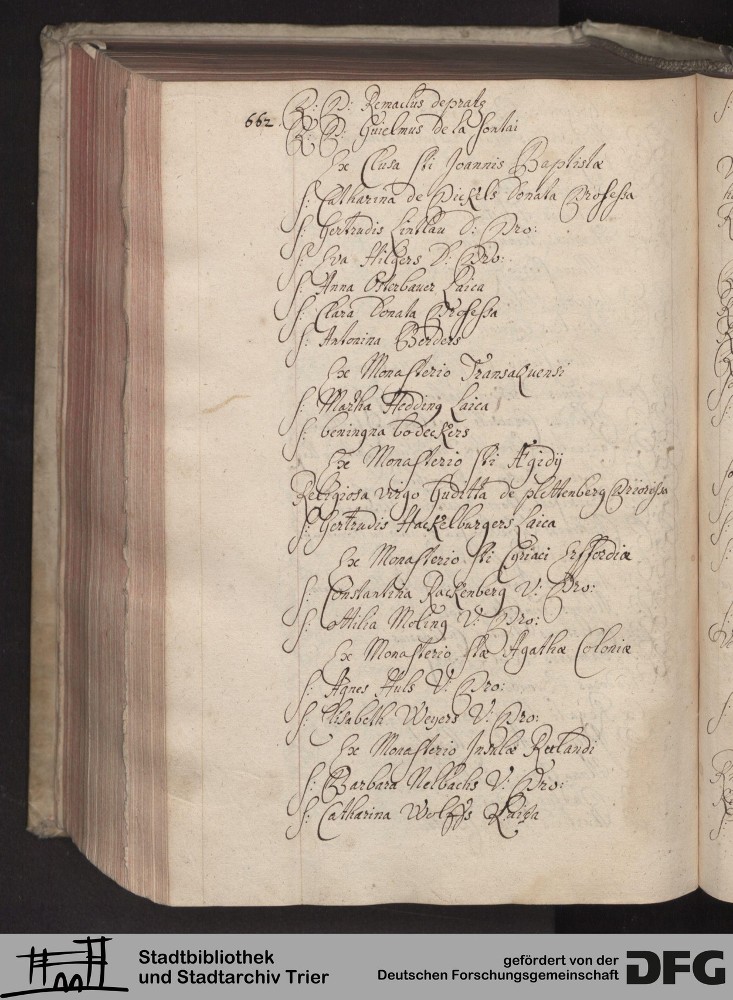 662. R: P: Remaclus depratz
R: P: Guielmus de la fontai
Ex Clusa sti Joannis Baptistæ
S: Catharina de Pickels Donata Professa
S: Gertrudis Lintlau D: Pro:
S: Eva Hilgers D: Pro:
S: Anna Osterbauer Laica
S: Clara Donata Professa
S: Antonina Berders
Ex Monasterio Transaquensi
S: Martha Hedding Laica
S: beningna bodeckers
Ex Monasterio sti Ægidij
Religiosa virgo Juditta de plettenberg Priorissa
S: Gertrudis Hackelburgers Laica
Ex Monasterio sti Cyriaci Erffordiæ
S: Constantina Rackenberg V: Pro:
S: ottilia Moling V: Pro:
Ex Monasterio stæ Agathæ Coloniæ
S: Agnes Huls V: Pro:
S: Elisabeth Weyers V: Pro:
Ex Monasterio Insulæ Rollandi
S: Barbara Nelbachs V: Pro:
S: Catharina Wolffs Laica
Stadtbibliothek
und Stadtarchiv Trier
gefördert von der
Deutschen Forschungsgemeinschaft
DFG